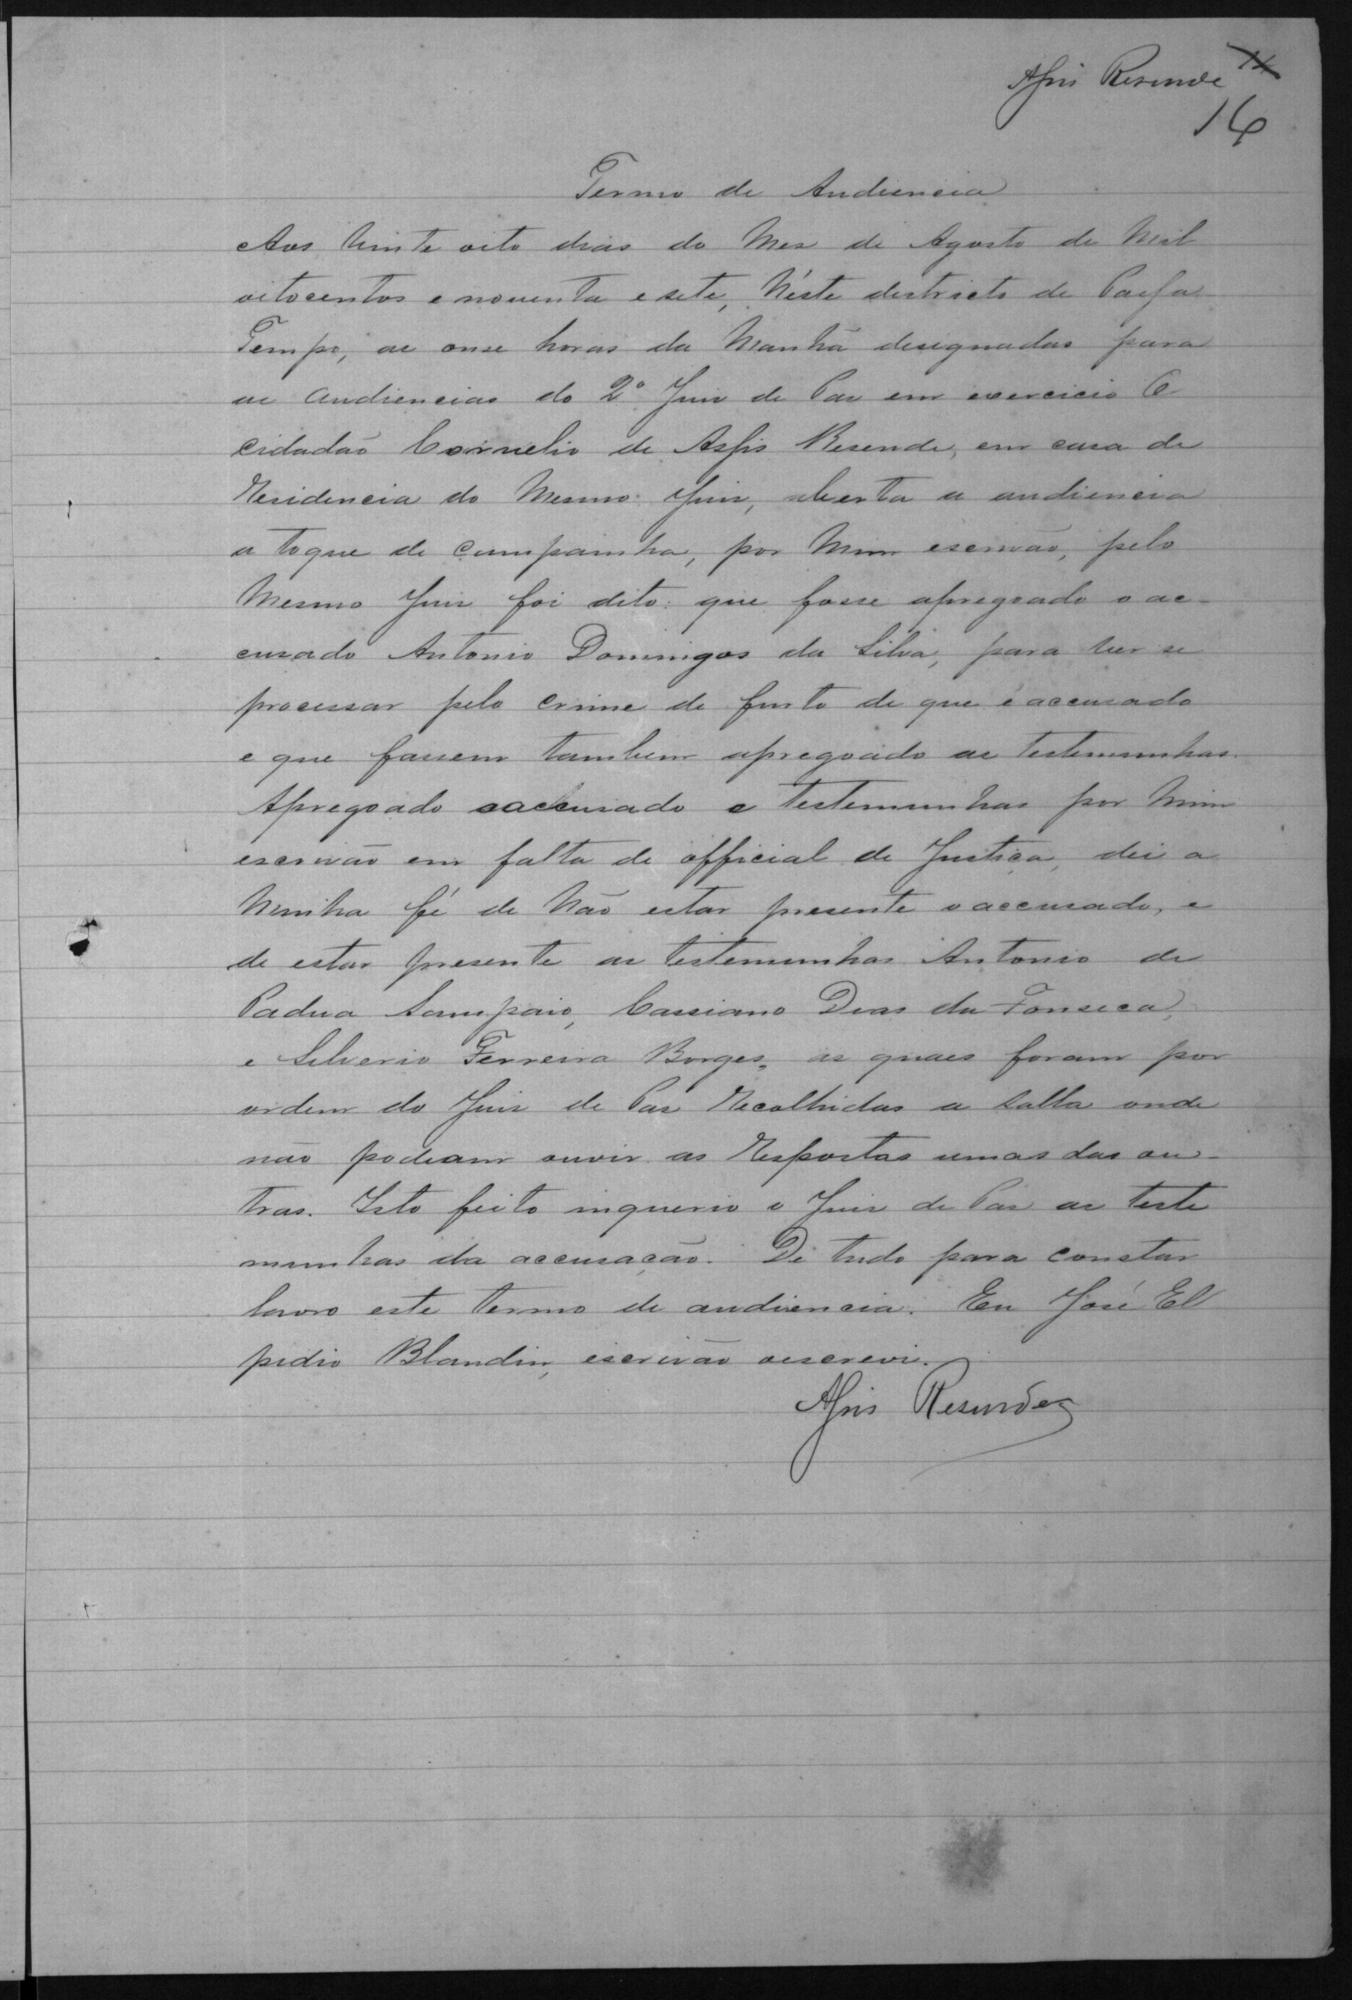 Assis Resende
16
Termo de Audiencia
Aos Vinte oito dias do Mez de Agosto de Mil
oitocentos e noventa e sete, N'este districto de Passa
Tempo, as onse horas da Manhã designadas para
as audiencias do 2º Juiz de Paz em exercicio O
cidadão Cornelio de Assis Resende, em casa de
Residencia do Mesmo Juiz, aberta a audiencia
a toque de campainha, por Mim escrivão, pelo
Mesmo Juiz foi dito: que fosse apregoado o ac-
cusado Antonio Domingos da Silva, para ver se
processar pelo crime de furto de que é accusado
e que fossem tambem apregoado as testemunhas.
Apregoado o accusado e testemunhas por Mim
escrivão em falta de official de Justiça, dei a
Minha fé de Não estar presente o accusado, e
de estar presente as testemunhas Antonio de
Padua Sampaio, Cassiano Dias da Fonseca,
e Silverio Ferreira Borges, as quaes foram por
ordem do Juiz de Paz Recolhidas a salla onde
não podiam ouvir as Respostas umas das ou-
tras. Isto feito inquerio o Juiz de Paz as teste
munhas da accusação. De tudo para constar
lavro este termo de audiencia. Eu José El
pidio Blandin, escrivão oescrevi.
Assis Resende